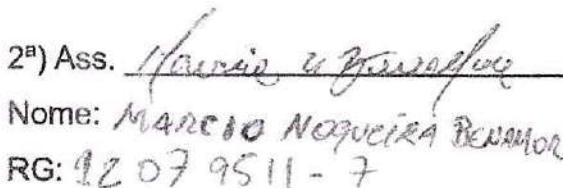 2ª) Ass.
Nome: MARCIO NOGUEIRA BENAMOR
RG: 12079511-7